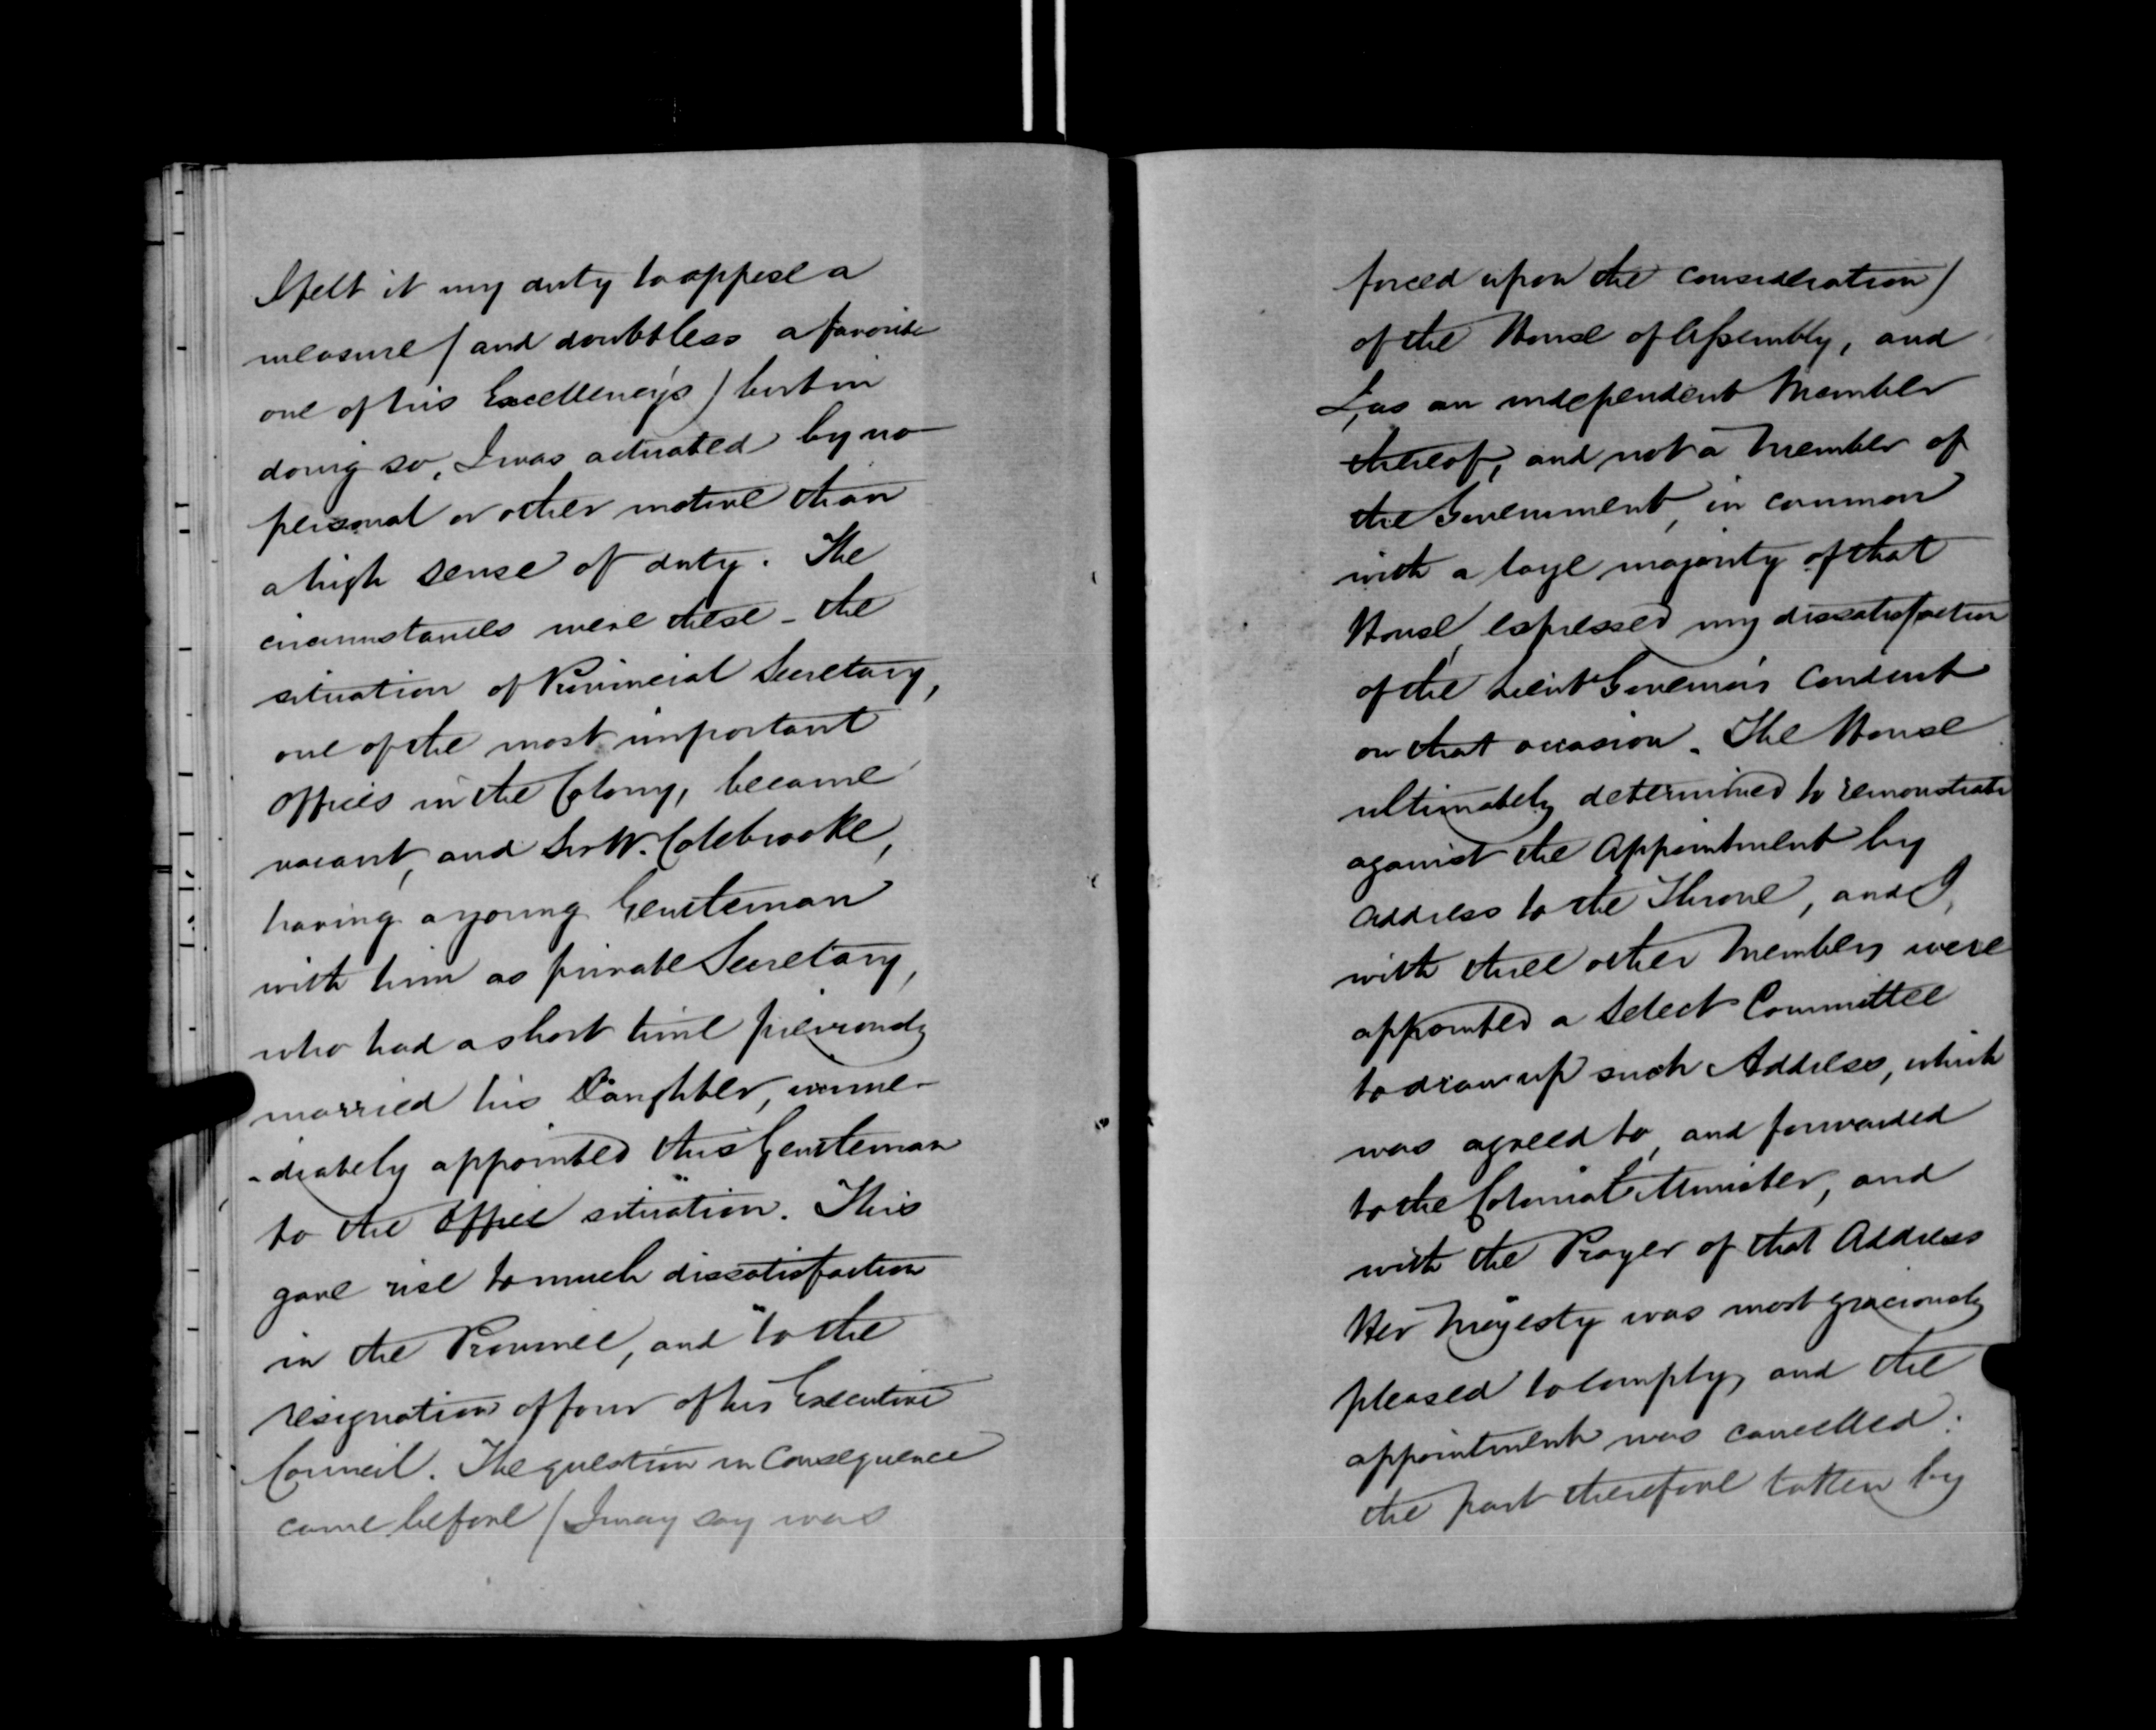 I felt it my duty to oppose a
measure (and doubtless a favorite
one of his Excellency's) but in
doing so, I was actuated by no
personal or other motive than
a high sense of duty. The
circumstances were these - the
situation of Provincial Secretary,
one of the most important
offices in the Colony, became
vacant, and Sir W. Colebrooke,
having a young Gentleman
with him as private Secretary,
who had a short time previously
married his Daughter, imme-
-diately appointed this Gentleman
to the Office situation. This
gave rise to much dissatisfaction
in the Province, and "to the
resignation of four of his Executive
Council. The question in Consequence
came before (I may say was
forced upon the consideration)
of the House of Assembly, and
I, as an independent Member
thereof, and not a Member of
the Government, in common
with a large majority of that
House, expressed my dissatisfaction
of the Lieut Governor's Conduct
on that occasion. The House
ultimately determined to remonstrate
against the Appointment by
Address to the Throne, and I,
with three other Members were
appointed a Select Committee
to draw up such Address, which
was agreed to, and forwarded
to the Colonial Minister, and
with the Prayer of that Address
Her Majesty was most graciously
pleased to comply, and the
appointment was cancelled.
the part therefore taken by